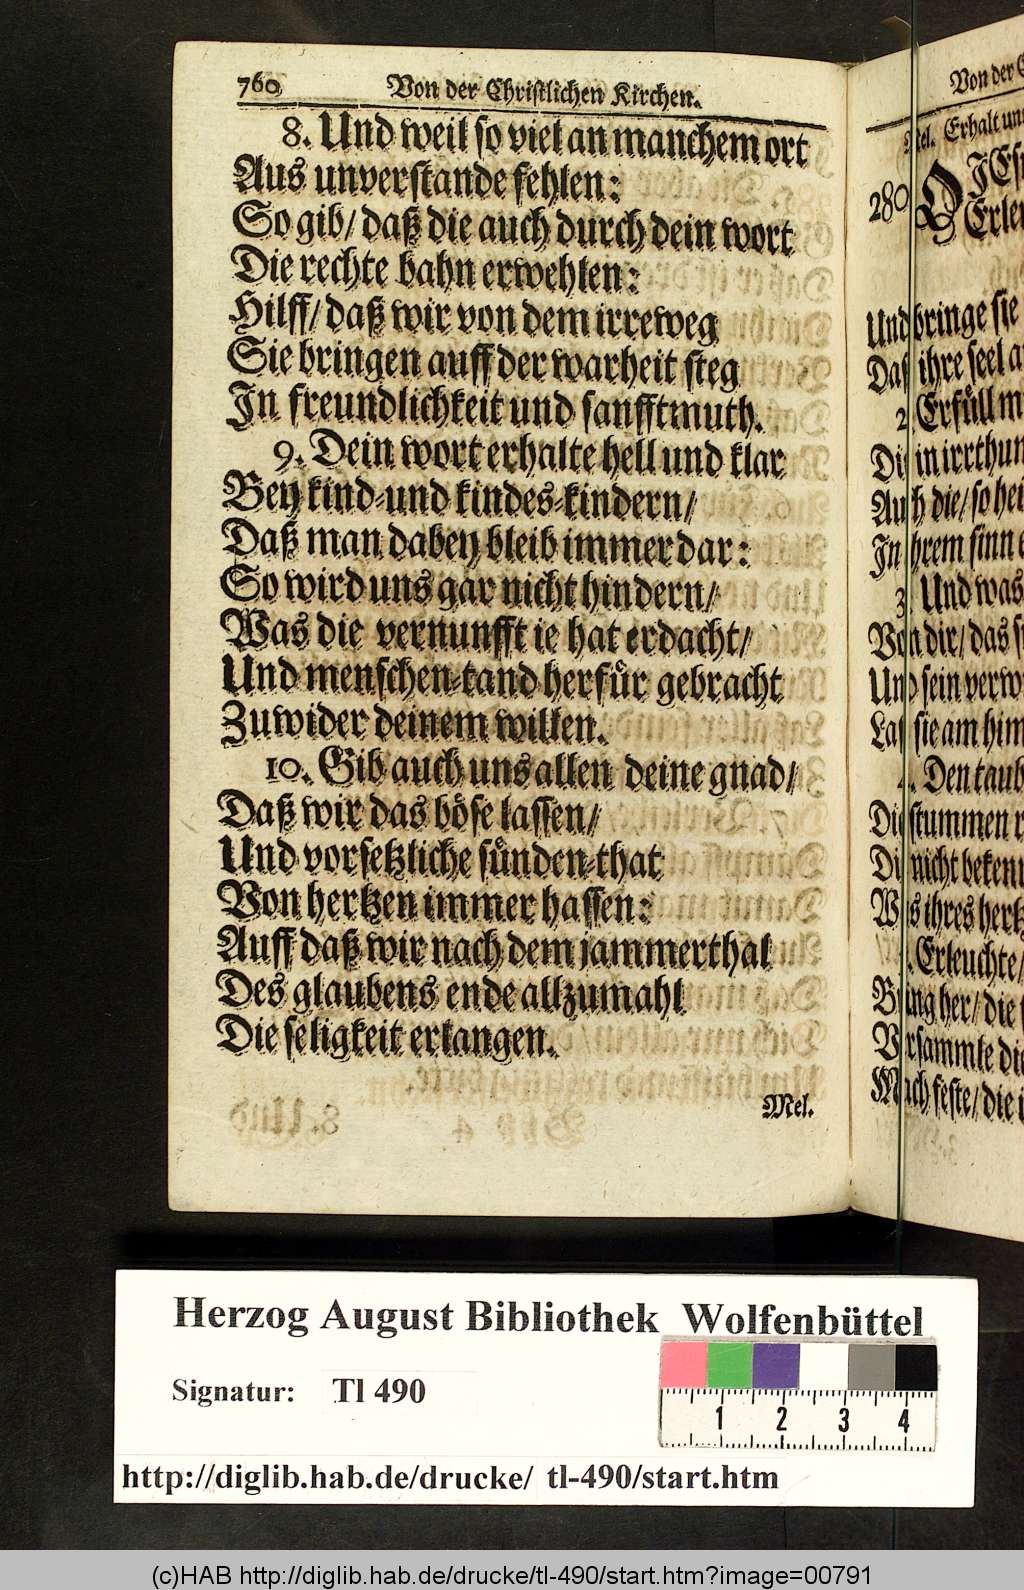 760 Von der Christlichen Kirchen.
8. Und weil so viel an manchem ort
Aus unverstande fehlen:
So gib/ daß die auch durch dein wort
Die rechte bahn erwehlen:
Hilff/ daß wir von dem irreweg
Sie bringen auff der warheit steg
In freundlichkeit und sanfftmuth.
9. Dein wort erhalte hell und klar
Bey kind-und kindes-kindern/
Daß man dabey bleib immerdar:
So wird uns gar nicht hindern/
Was die vernunfft ie hat erdacht/
Und menschen-tand herfür gebracht
Zuwider deinem willen.
10. Gib auch uns allen deine gnad/
Daß wir das böse lassen/
Und vorsetzliche sünden-that
Von hertzen immer hassen:
Auff daß wir nach dem jammerthal
Des glaubens ende allzumahl
Die seligkeit erlangen.
Mel.
Von der
Mel. Erhalt
280
Und bringe sie
Daß ihre seel
2. Erfüll
Die in irrthum
Auch die/ so
In ihrem sinn
3. Und was
Von dir/ das
Und sein
Laß sie am
4. Den
Die stummen
Die nicht
Was ihres
Erleuchte/
Bring her/ die
Versammle die
Mach feste/ die
Herzog August Bibliothek Wolfenbüttel
Signatur: Tl 490
1 2 3 4
http://diglib.hab.de/drucke/ tl-490/start.htm
(c)HAB http://diglib.hab.de/drucke/tl-490/start.htm?image=00791